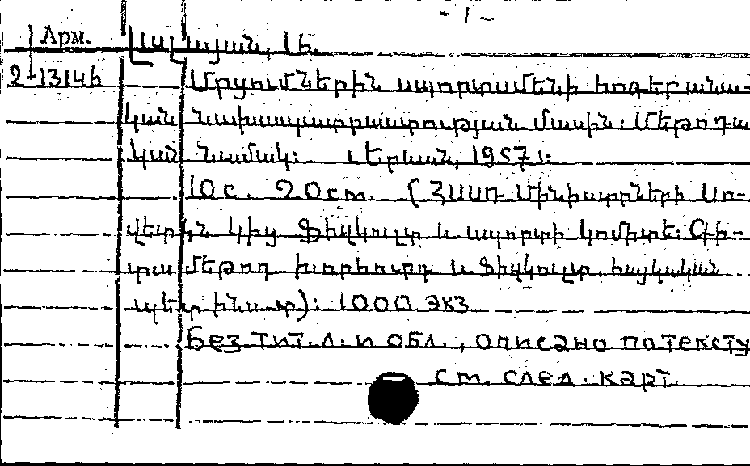 - 1 -
Арм.
2-13146
Մրցումներին սպորտսմենի հոգեբանա-
կան նախապատրաստության մասին: Մեթոդա
կան նամակ: Երևան, 1957:
10 с. 20 cm. (ՀՍՍՌ Մինիստրների Սո-
վետին կից Ֆիզկուլտ և սպորտի կոմիտե: Գի-
տա մեթոդ խորհուրդ և Ֆիզկուլտ. հայկական
պետ. ինստ): 1000 экз
Без тит. л. и обл., описано по тексту
см. след. карт.